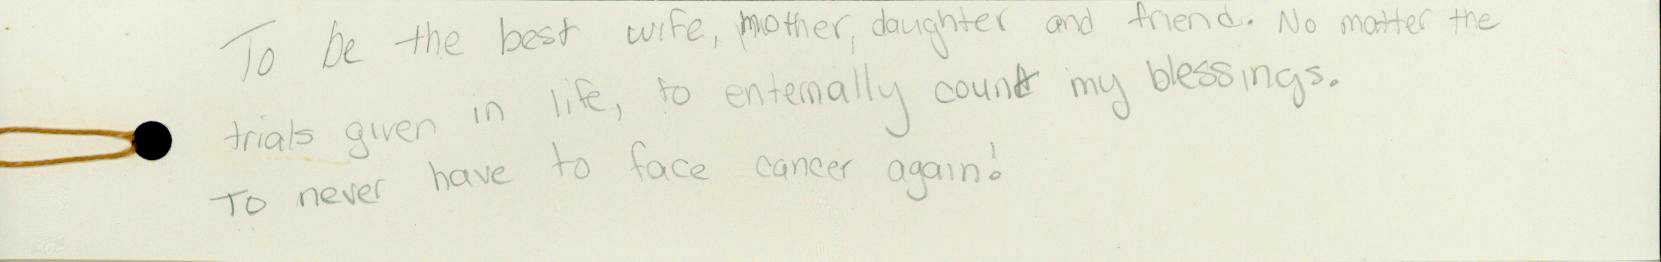 To be the best wife, mother, daughter and friend. No matter the
trials given in life, to enternally count my blessings.
To never have to face cancer again!